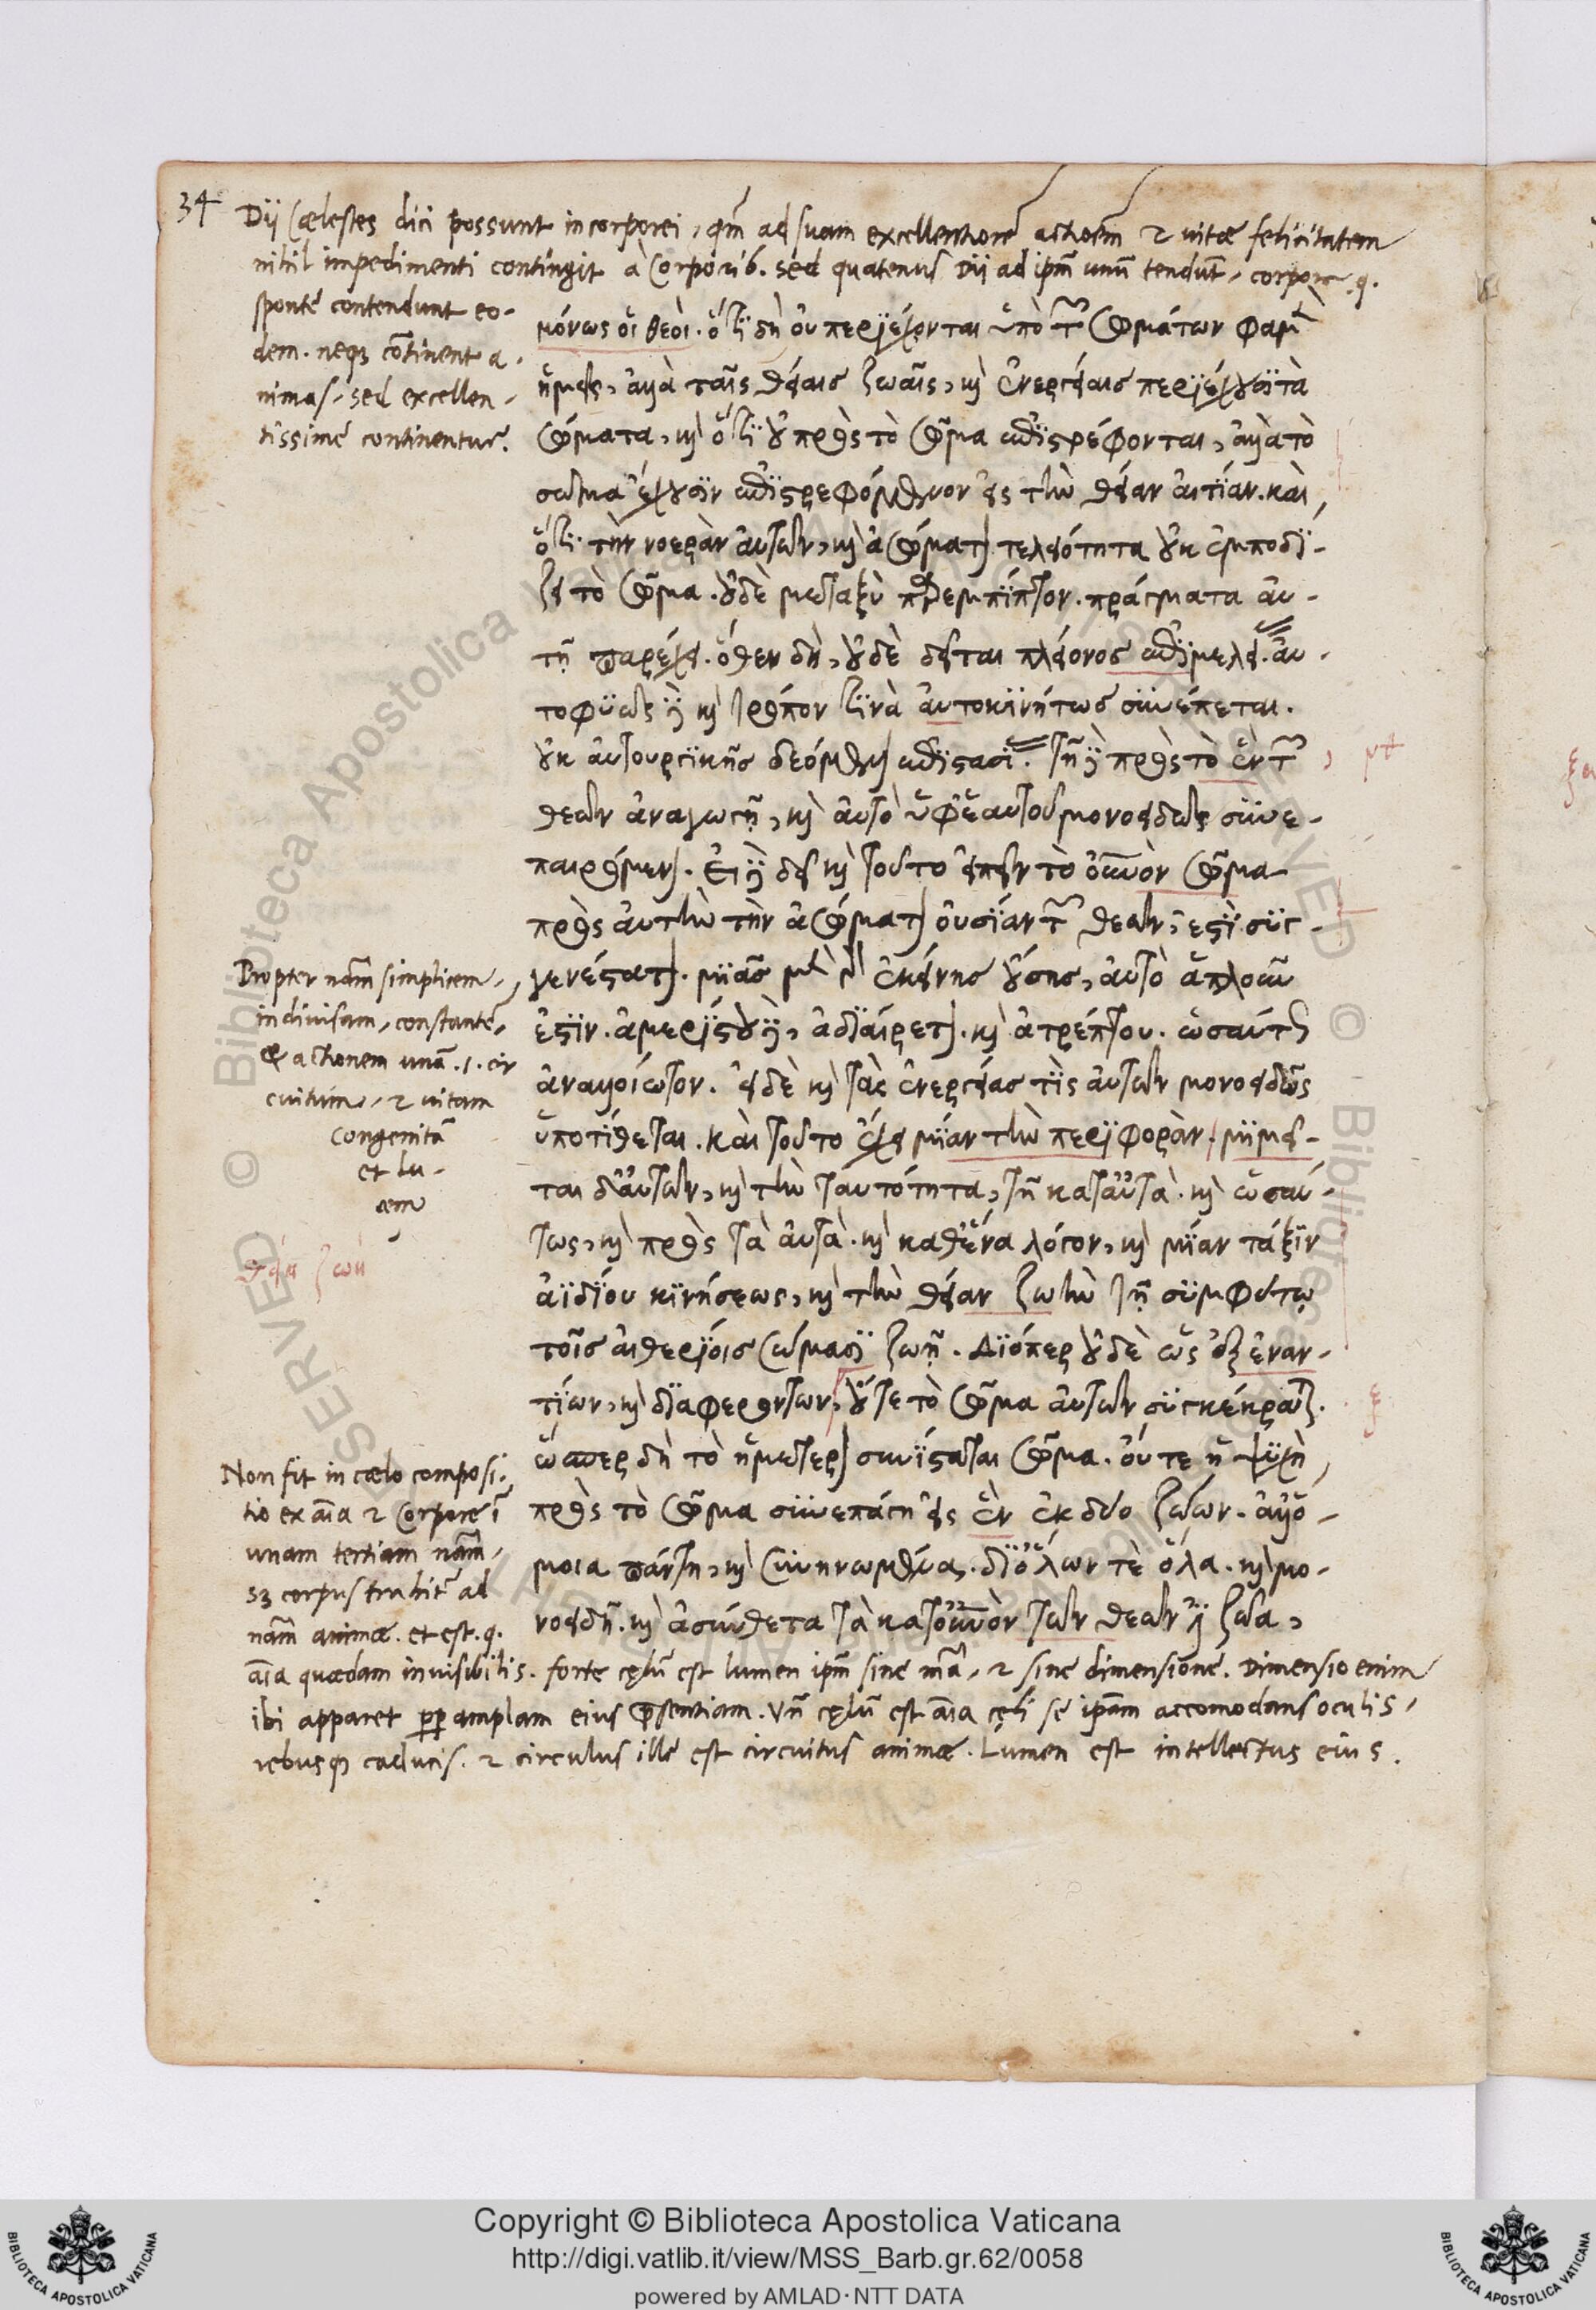 34
Dij Cælestes dici possunt incorporei, qm̃ ad suam excellentiorẽ actioẽm & uitæ felicitatem
nihil impedimenti contingit à corporib. sed quatenus Dij ad ipm̃ unũ tendũt, corpore .q.
sponte contendunt eo-
dem. neq; cõtinent a-
nimas, sed excellen-
tissime continentur.
μόνως οἱ θεοὶ. ὅτι δὴ οὐ περιέχονται ὑπὸ τῶν σωμάτων φαμὲν
ἡμεῖς, ἀλλὰ ταῖς θείαις ζωαῖς, καὶ ἐνεργείαις περιέχουσι τὰ
σώματα, καὶ ὅτι οὐ πρὸς τὸ σῶμα ἐπιστρέφονται, ἀλλὰ τὸ
σῶμα ἔχουσιν ἐπιστρεφόμενον εἰς τὴν θείαν αἰτίαν. καὶ
ὅτι τὴν νοερὰν αὐτῶν, καὶ ἀσώματον τελειότητα οὐκ ἐμποδί-
ζει τὸ σῶμα. οὐδὲ μεταξὺ παρεμπίπτον. πράγματα αυ-
τῇ παρέχει. ὅθεν δὴ, οὐδὲ δεῖται πλείονος ἐπιμελεί. αυ-
τοφυῶς δὲ καὶ τρόπον τινὰ αὐτοκινήτως συνέπεται.
οὐκ αὐτουργικῆς δεόμενον ἐπιστασί. τῇ δὲ πρὸς τὸ ἓν τῶν
θεῶν ἀναγωγῇ, καὶ αὐτὸ ὑφ' ἑαυτοῦ μονοειδῶς συνε-
παιρόμενον. Εἰ δὲ δεῖ καὶ τοῦτο εἰπεῖν τὸ οὐνὸν σῶμα
πρὸς αὐτὴν τὴν ἀσώματον οὐσίαν τῶν θεῶν, ἐστὶ συγ-
γενέστατον. μιᾶς μὲν γὰρ ἐκείνης οὔσης, αὐτὸ ἁπλοῦν
ἐστιν. ἀμερίστου δὲ, ἀδιαίρετον. καὶ ἀτρέπτου. ὡσαύτως
ἀναλλοίωτον. εἰ δὲ καὶ τὰς ἐνεργείας τὶς αὐτῶν μονοειδῶς
ὑποτίθεται. καὶ τοῦτο ἔχει μίαν τὴν περιφορὰν. μιμεῖ-
ται δ' αὐτῶν, καὶ τὴν ταυτότητα, τῇ κατ' αὐτὰ. καὶ ὡσαύ-
τως, καὶ πρὸς τὰ αὐτὰ. καὶ καθ' ἕνα λόγον, καὶ μίαν τάξιν
ἀϊδίου κινήσεως, καὶ τὴν θείαν ζωὴν τῇ συμφύτῳ
τοῖς αἰθερίοις σώμασι ζωῇ. Διόπερ οὐδὲ ὡς ἐξ ἐναν-
τίων, καὶ διαφερόντων, οὔτε τὸ σῶμα αὐτῶν συγκέκραται.
ὥσπερ δὴ τὸ ἡμέτερον συνίσταται σῶμα. οὔτε ἡ ψυχὴ
πρὸς τὸ σῶμα συνεπάγη εἰς ἓν ἐκ δύο ζῶον. ἀλλ' ὅ-
μοια πάντῃ, καὶ συνηνωμένα. δι' ὅλων τὲ ὅλα. καὶ μο-
νοειδῆ. καὶ ἀσύνθετα τὰ κατ' οὐνὸν τῶν θεῶν ἐστὶ ζῶα,
Propter nãm simplicem,
indiuisam, constantẽ,
& actionem unã .i. cir
cuitum, & uitam
congenitã
et lu-
cem
θεία ζωὴ
Non fit in cœlo composi-
tio ex aĩa & Corpore ĩ
unam tertiam nãm,
s; corpus trahit̃ ad
nãm animæ. et est .q.
aĩa quædam inuisibilis. forte cęlũ est lumen ipm̃ sine mã̃, & sine dimensione. Dimensio enim
ibi apparet ꝑꝑ amplam eius p̃sentiam. Vñ cęlũ est aĩa cęli se ipãm accomodans oculis,
rebusq; caducis. & circulus ille est circuitus animæ. Lumen est intellectus eius.
Copyright © Biblioteca Apostolica Vaticana
http://digi.vatlib.it/view/MSS_Barb.gr.62/0058
powered by AMLAD · NTT DATA
BIBLIOTECA APOSTOLICA VATICANA
BIBLIOTECA APOSTOLICA VATICANA